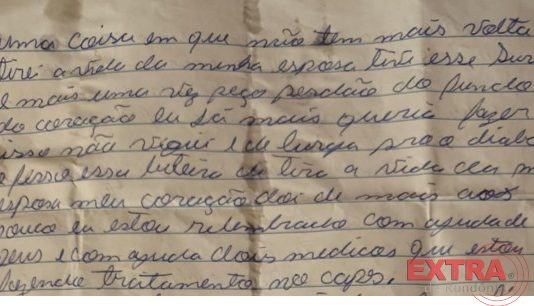 uma coisa em que não tem mais volta
tirei a vida da minha esposa tive esse Sur
e mais uma vez peço perdão do fundo
do coração eu já mais queria fazer
isso não vigiei e de lugar pra o diabo
e fesso essa de tira a vida da m
esposa meu coração doi de mais aos
pouco eu estou relembrando com ajuda de
Deus e com ajuda dois medicos que estou
fazendo tratamento no caps.
EXTRA
Rondônia